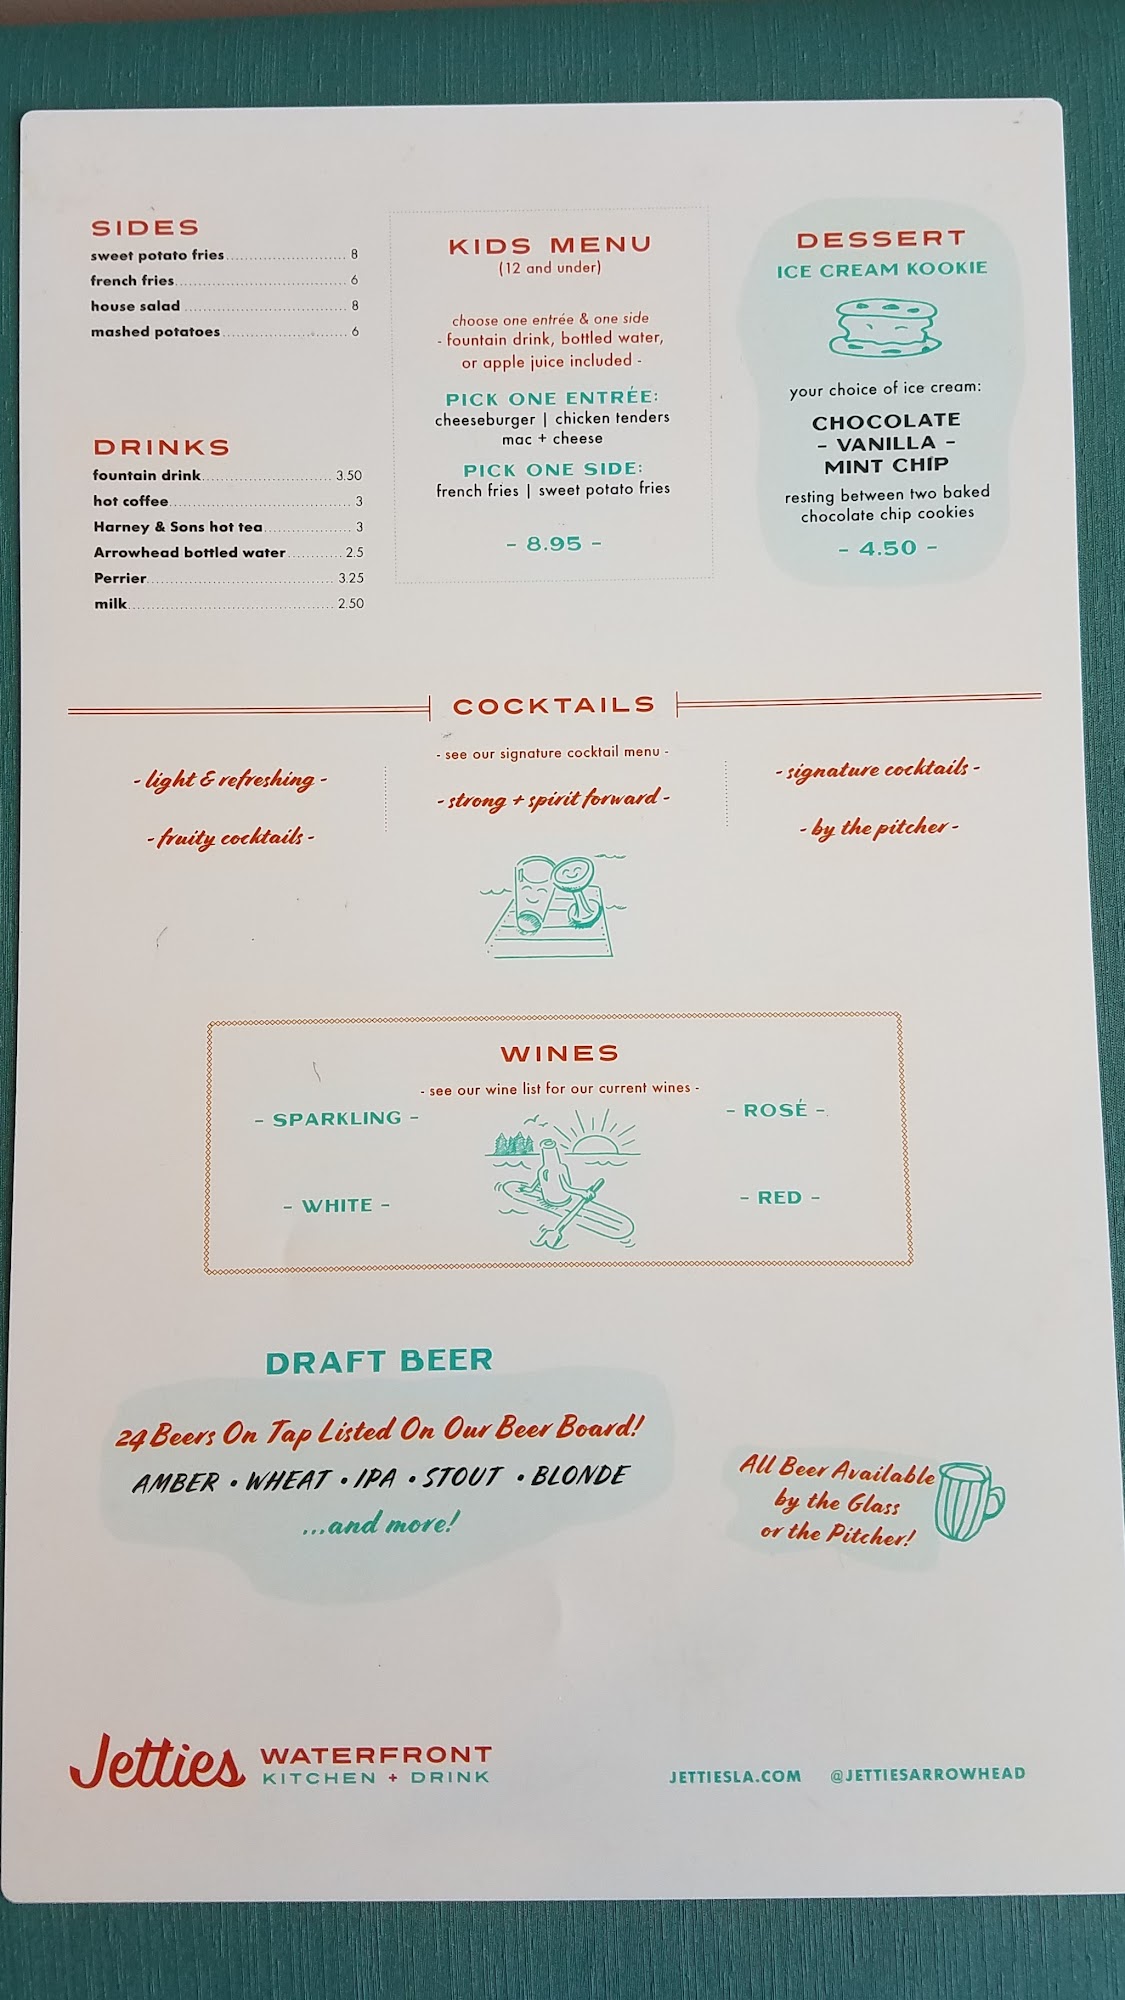 SIDES
sweet potato fries 8
french fries 6
house salad 8
mashed potatoes 6
DRINKS
fountain drink 3.50
hot coffee 3
Harney & Sons hot tea 3
Arrowhead bottled water 2.5
Perrier 3.25
milk 2.50
KIDS MENU
(12 and under)
choose one entrée & one side
- fountain drink, bottled water,
or apple juice included -
PICK ONE ENTRÉE:
cheeseburger | chicken tenders
mac + cheese
PICK ONE SIDE:
french fries | sweet potato fries
- 8.95 -
DESSERT
ICE CREAM KOOKIE
your choice of ice cream:
CHOCOLATE
- VANILLA -
MINT CHIP
resting between two baked
chocolate chip cookies
- 4.50 -
COCKTAILS
- see our signature cocktail menu -
- light & refreshing -
- fruity cocktails -
- strong + spirit forward -
- signature cocktails -
- by the pitcher -
WINES
- see our wine list for our current wines -
- SPARKLING -
- ROSÉ -
- WHITE -
- RED -
DRAFT BEER
24 Beers On Tap Listed On Our Beer Board!
AMBER • WHEAT • IPA • STOUT • BLONDE
...and more!
All Beer Available
by the Glass
or the Pitcher!
Jetties WATERFRONT
KITCHEN + DRINK
JETTIESLA.COM @JETTIESARROWHEAD